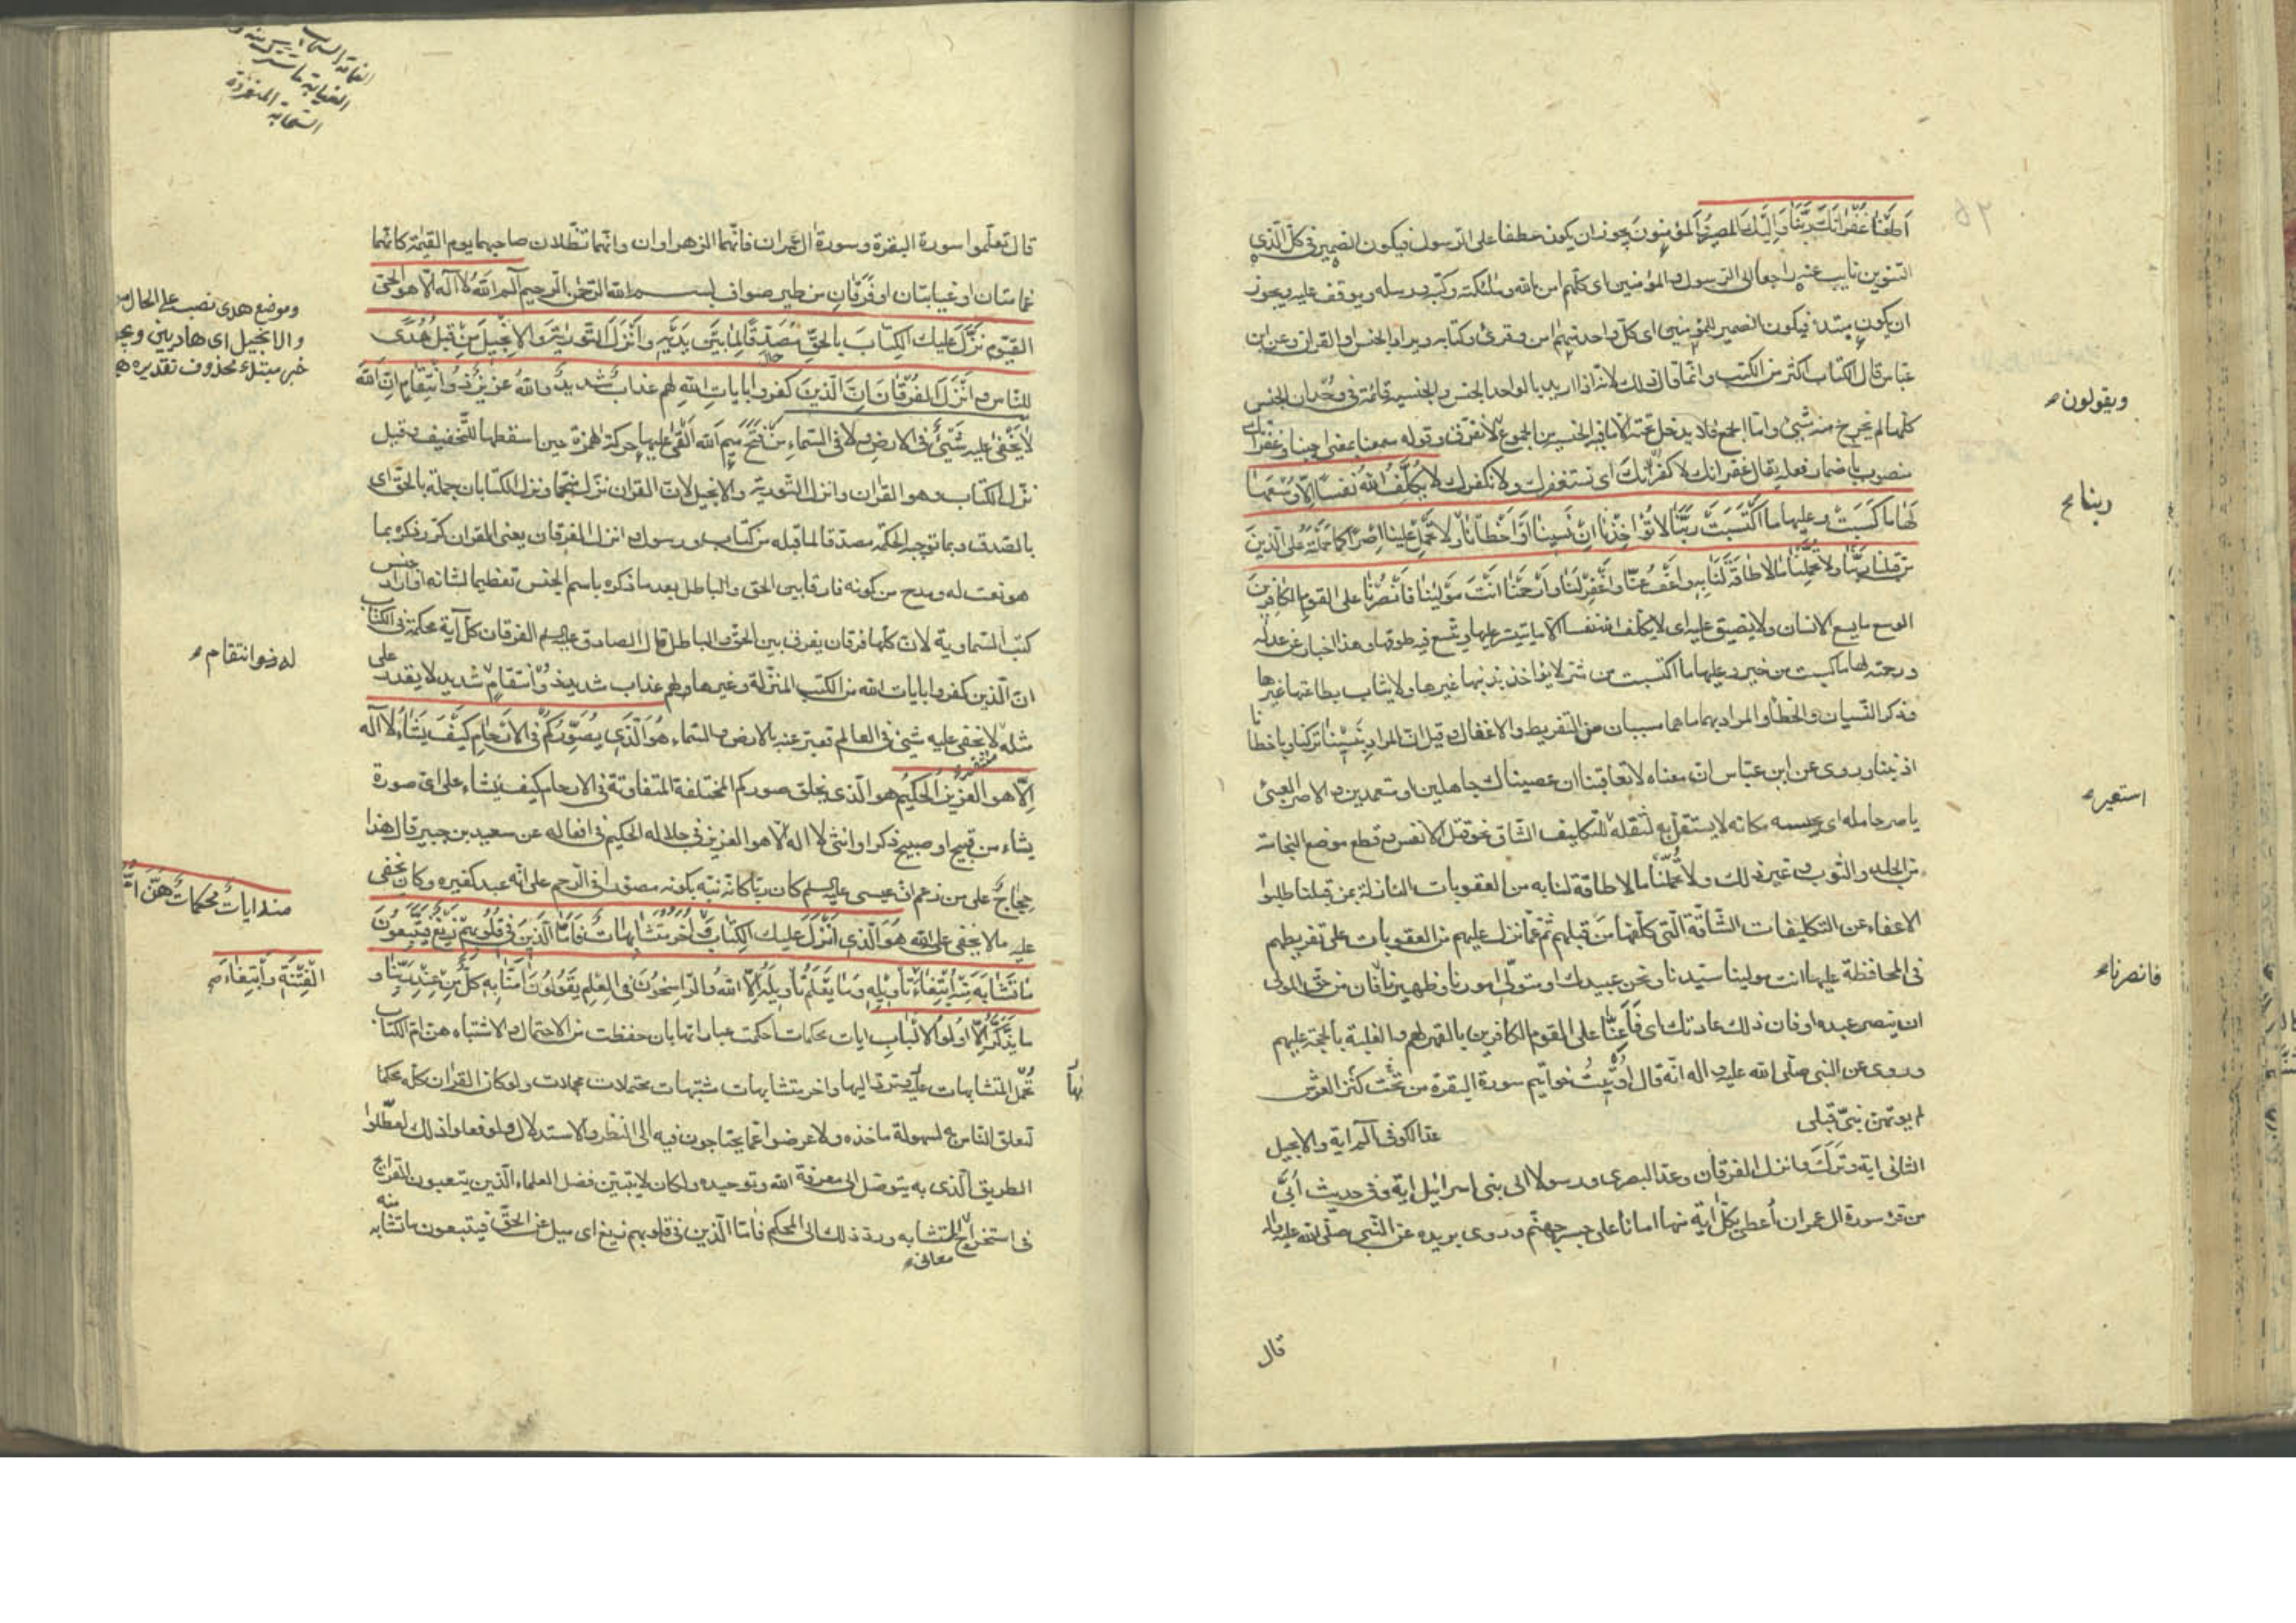 اَطَعْنَا غُفْرَانَكَ رَبَّنَا وَاِلَيْكَ الْمَصِيرُ وَالْمُؤْمِنُونَ يجوز ان يكون عطفا على الرسول فيكون الضمير فى كلّ الّذى
التنوين نايب عنه راجعا الى الرسول والمؤمنين اى كلّهم امن بالله وملئكته وكتبه ورسله ويوقف عليه ويجوز
ان يكون مبتدء فيكون الضمير للمؤمنين اى كلّ واحد منهم امن وقرئ وكتابه يراد الجنس او القران وعن ابن
عبّاس قال الكتاب اكثر من الكتب وانّما قال ذلك لانه اذا اريد بالواحد الجنس والجنسية قائمة فى وحدان الجنس
كلّها لم يخرج منه شىٔ وامّا الجمع فلا يدخل تحته الّا ما فيه الجنسية من الجموع لا نفرق وقوله سمعنا بمعنى اجبنا وغفرانك
ويقولون
منصوب باضمار فعله يقال غفرانك لا كفرانك اى نستغفرك ولا نكفرك لَا يُكَلِّفُ اللّٰهُ نَفْسًا اِلَّا وُسْعَهَا
لَهَا مَا كَسَبَتْ وعليها ما اكْتَسَبَتْ رَبَّنَا لَا تُؤَاخِذْنَا اِنْ نَسِينَا اَوْ اَخْطَأْنَا وَلَا تَحْمِلْ عَلَيْنَا اِصْرًا كَمَا حَمَلْتَهُ عَلَى الَّذِينَ
ربنا
مِنْ قَبْلِنَا رَبَّنَا وَلَا تُحَمِّلْنَا مَا لَا طَاقَةَ لَنَا بِهِ وَاعْفُ عَنَّا وَاغْفِرْ لَنَا وَارْحَمْنَا اَنْتَ مَوْلٰينَا فَانْصُرْنَا على القوم الكافرين
الوسع ما يسع الانسان ولا يضيق عليه اى لا يكلف الله نفسا الّا ما يتيسّر عليها ويتّسع فيه طوقها وهذا اخبار عن عدله
ورحمته لها ما كسبت من خير وعليها ما اكتسبت من شرّ لا يؤاخذ بذنبها غيرها ولا يثاب بطاعتها غيرها
وذكر النّسيان والخطأ والمراد بهما ما هما مسببان عن التفريط والاغفال وقيل انّ المراد بنسينا تركنا وباخطأنا
اذنبنا وروى عن ابن عبّاس انّ معناه لا تعاقبنا ان عصيناك جاهلين او متعمدين والاصر العبئ
يأصر حامله اى يحبسه مكانه لا يستقل به لثقله للتكليف الشاق نحو قتل الانفس وقطع موضع النجاسة
استعير
من الجلد والثوب وغير ذلك ولا تحمّلنا ما لا طاقة لنا به من العقوبات النازلة بمن قبلنا طلبوا
الاعفاء عن التكليفات الشّاقّة الّتى كلّفها من قبلهم ثم عمّا نزل عليهم من العقوبات على تفريطهم
فى المحافظة عليها انت مولينا سيّدنا ونحن عبيدك او متولّى امورنا وظهيرنا فان من حقّ المولى
فانصرنا
ان ينصر عبده او فان ذلك عادتك اى فَاَعِنَّا على القوم الكافرين بالقهر لهم والغلبة بالحجّة عليهم
وروى عن النبى صلّى الله عليه واله انّه قال اوتيت خواتيم سورة البقرة من تحت كنز العرش
لم يؤتهنّ نبىّ قبلى عدّ الكوفى الم اية والانجيل
الثانى اية وترك وانزل الفرقان وعدّ البصرى ورسولا الى بنى اسرائيل اية وفى حديث اُبىّ
من قرء سورة ال عمران اُعطى بكلّ اية منها امانا على جسر جهنّم وروى بريده عن النّبى صلّى الله عليه واله
قال
قال تعلّموا سورة البقرة وسورة ال عمران فانّهما الزهراوان وانّهما تظلّان صاحبهما يوم القيٰمة كانّهما
غمامتان او غيابتان او فرقان من طير صواف بسم الله الرّحمن الرّحيم الم اللهُ لا اله الّا هو الحىّ
القيّوم نَزَّلَ عَلَيْكَ الْكِتَابَ بِالْحَقِّ مُصَدِّقًا لِمَا بَيْنَ يَدَيْهِ وَاَنْزَلَ التَّوْرٰيةَ وَالْاِنْجِيلَ مِنْ قَبْلُ هُدًى
وموضع هدى نصب على الحال من
والانجيل اى هاديين
خبر مبتدء محذوف تقديره
للنّاس وَاَنْزَلَ الْفُرْقَانَ اِنَّ الَّذِينَ كفروا بايات الله لهم عذاب شديد والله عزيز ذو انتقام انّ اللهَ
لَا يَخْفٰى عليه شىْءٌ فى الارض ولا فى السّماء من فتح ميم الم الله القى عليها حركة الهمزة حين اسقطها للتّخفيف وقيل
نزّل الكتاب وهو القران وانزل التورية والانجيل لانّ القران نزل منجّما ونزل الكتابان جملة بالحقّ اى
بالصّدق وبما توجبه الحكمة مصدّقا لما قبله من كتاب ورسول وانزل الفرقان يعنى القران كرّر ذكره بما
هو نعت له ومدح من كونه فارقا بين الحق والباطل بعد ما ذكره باسم الجنس تعظيما لشانه او اراد جنس
كتب السّماوية لانّ كلّها فرقان يفرق بين الحق والباطل قال الصادق عليه السلم الفرقان كلّ آية محكمة فى الكتاب
انّ الّذين كفروا بايات الله من الكتب المنزلة وغيرها لهم عذاب شديد ذو انتقام شديد لا يقدر على
له ذو انتقام
مثله لا يخفى عليه شىٔ فى العالم فعبّر عنه بالارض والسّماء هُوَ الَّذِى يُصَوِّرُكُمْ فِى الْاَرْحَامِ كَيْفَ يَشَاءُ لَا اِلٰهَ
اِلّا هو العزيز الحكيم هو الّذى يخلق صوركم المختلفة المتفاوتة فى الارحام كيف يشاء على اىّ صورة
يشاء من قبيح او صبيح ذكر او انثى لا اله الّا هو العزيز فى جلاله الحكيم فى افعاله عن سعيد بن جبير قال هذا
حِجَاجٌ على من زعم انّ عيسى عليه السلم كان ربّا كانّه نبّه بكونه مصوّرا فى الرّحم على انّه عبد كغيره وكان يخفى
عليه ما لا يخفى على الله هُوَ الَّذِى اَنْزَلَ عَلَيْكَ الْكِتَابَ وَاُخَرُ مُتَشَابِهَاتٌ فَاَمَّا الَّذِينَ فِى قُلُوبِهِمْ زَيْغٌ فَيَتَّبِعُونَ
منه ايات محكمات هنّ
مَا تَشَابَهَ مِنْهُ ابْتِغَاءَ تَأْوِيلِهِ وَمَا يَعْلَمُ تَأْوِيلَهُ اِلَّا اللهُ وَالرَّاسِخُونَ فِى الْعِلْمِ يَقُولُونَ اٰمَنَّا بِهِ كُلٌّ مِنْ عِنْدِ رَبِّنَا وَ
الْفِتْنَةِ وَابْتِغَاءَ
ما يَذَّكَّرُ اِلَّا اُولُوا الْاَلْبَابِ ايات محكمات احكمت عباراتها بان حفظت من الاحتمال والاشتباه هنّ امّ الكتاب
تحمل المتشابهات عليها وتردّ اليها واخر متشابهات مشتبهات محتملات مجملات ولو كان القران كلّه محكما
لتعلّق النّاس به لسهولة ماخذه ولاعرضوا عمّا يحتاجون فيه الى النظر والاستدلال ولو فعلوا ذلك لعطّلوا
الطريق الّذى به يتوصّل الى معرفة الله وتوحيده ولكان لا يتبيّن فضل العلماء الّذين يتعبون القرايح
فى استخراج معانى المتشابه وردّ ذلك الى المحكم فامّا الّذين فى قلوبهم زيغ اى ميل عن الحقّ فيتبعون ما تشابه منه